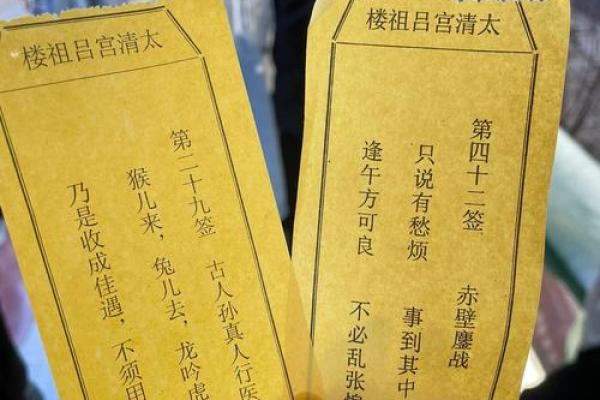 太清宫吕祖楼
第二十九签 古人孙真人行医
猴儿来，兔儿去，龙吟虎
乃是收成佳遇，不须用
太清宫吕祖楼
第四十二签 赤壁鏖战
只说有愁烦 事到其中
逢午方可良 不必乱张